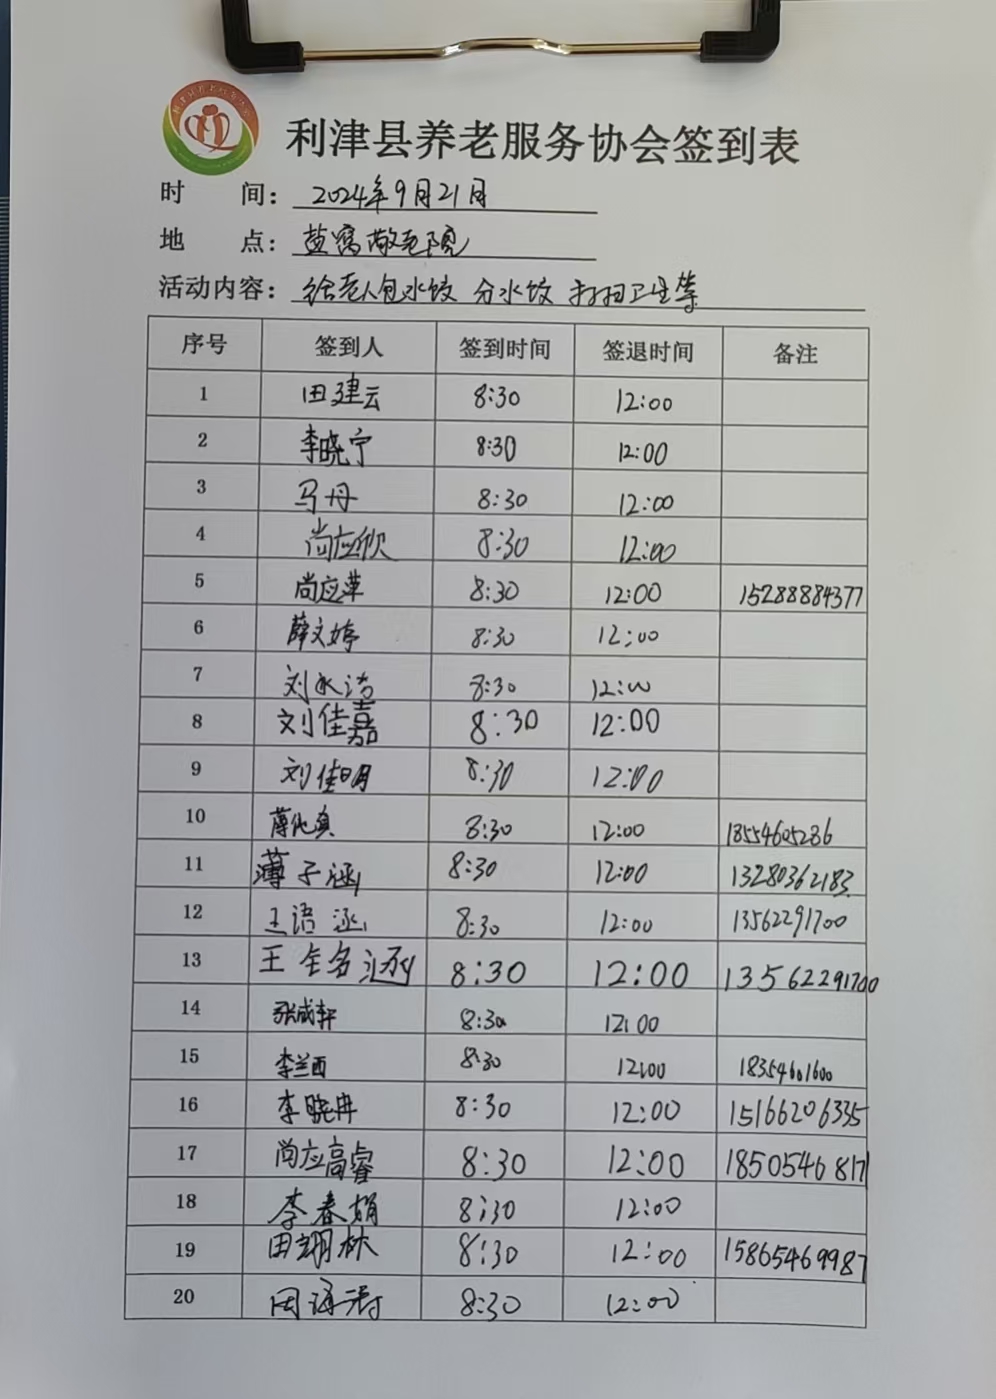 利津县养老服务协会签到表
时 间： 2024年9月21日
地 点： 盐窝敬老院
活动内容： 给老人包水饺 分水饺 打扫卫生等
序号 签到人 签到时间 签退时间 备注
1 田建云 8:30 12:00
2 李晓宁 8:30 12:00
3 马丹 8:30 12:00
4 尚应欣 8:30 12:00
5 尚应苹 8:30 12:00 15288884377
6 薛文婷 8:30 12:00
7 刘永洁 8:30 12:00
8 刘佳嘉 8:30 12:00
9 刘佳明 8:30 12:00
10 8:30 12:00 18554605286
11 薄子涵 8:30 12:00 13280362183
12 王语涵 8:30 12:00 13562291700
13 王铭涵 8:30 12:00 13562291700
14 张成轩 8:30 12:00
15 李兰西 8:30 12:00 18354601600
16 李晓冉 8:30 12:00 15166206335
17 尚应高睿 8:30 12:00 1850546817
18 李春娟 8:30 12:00
19 田翊林 8:30 12:00 15865469987
20 8:30 12:00